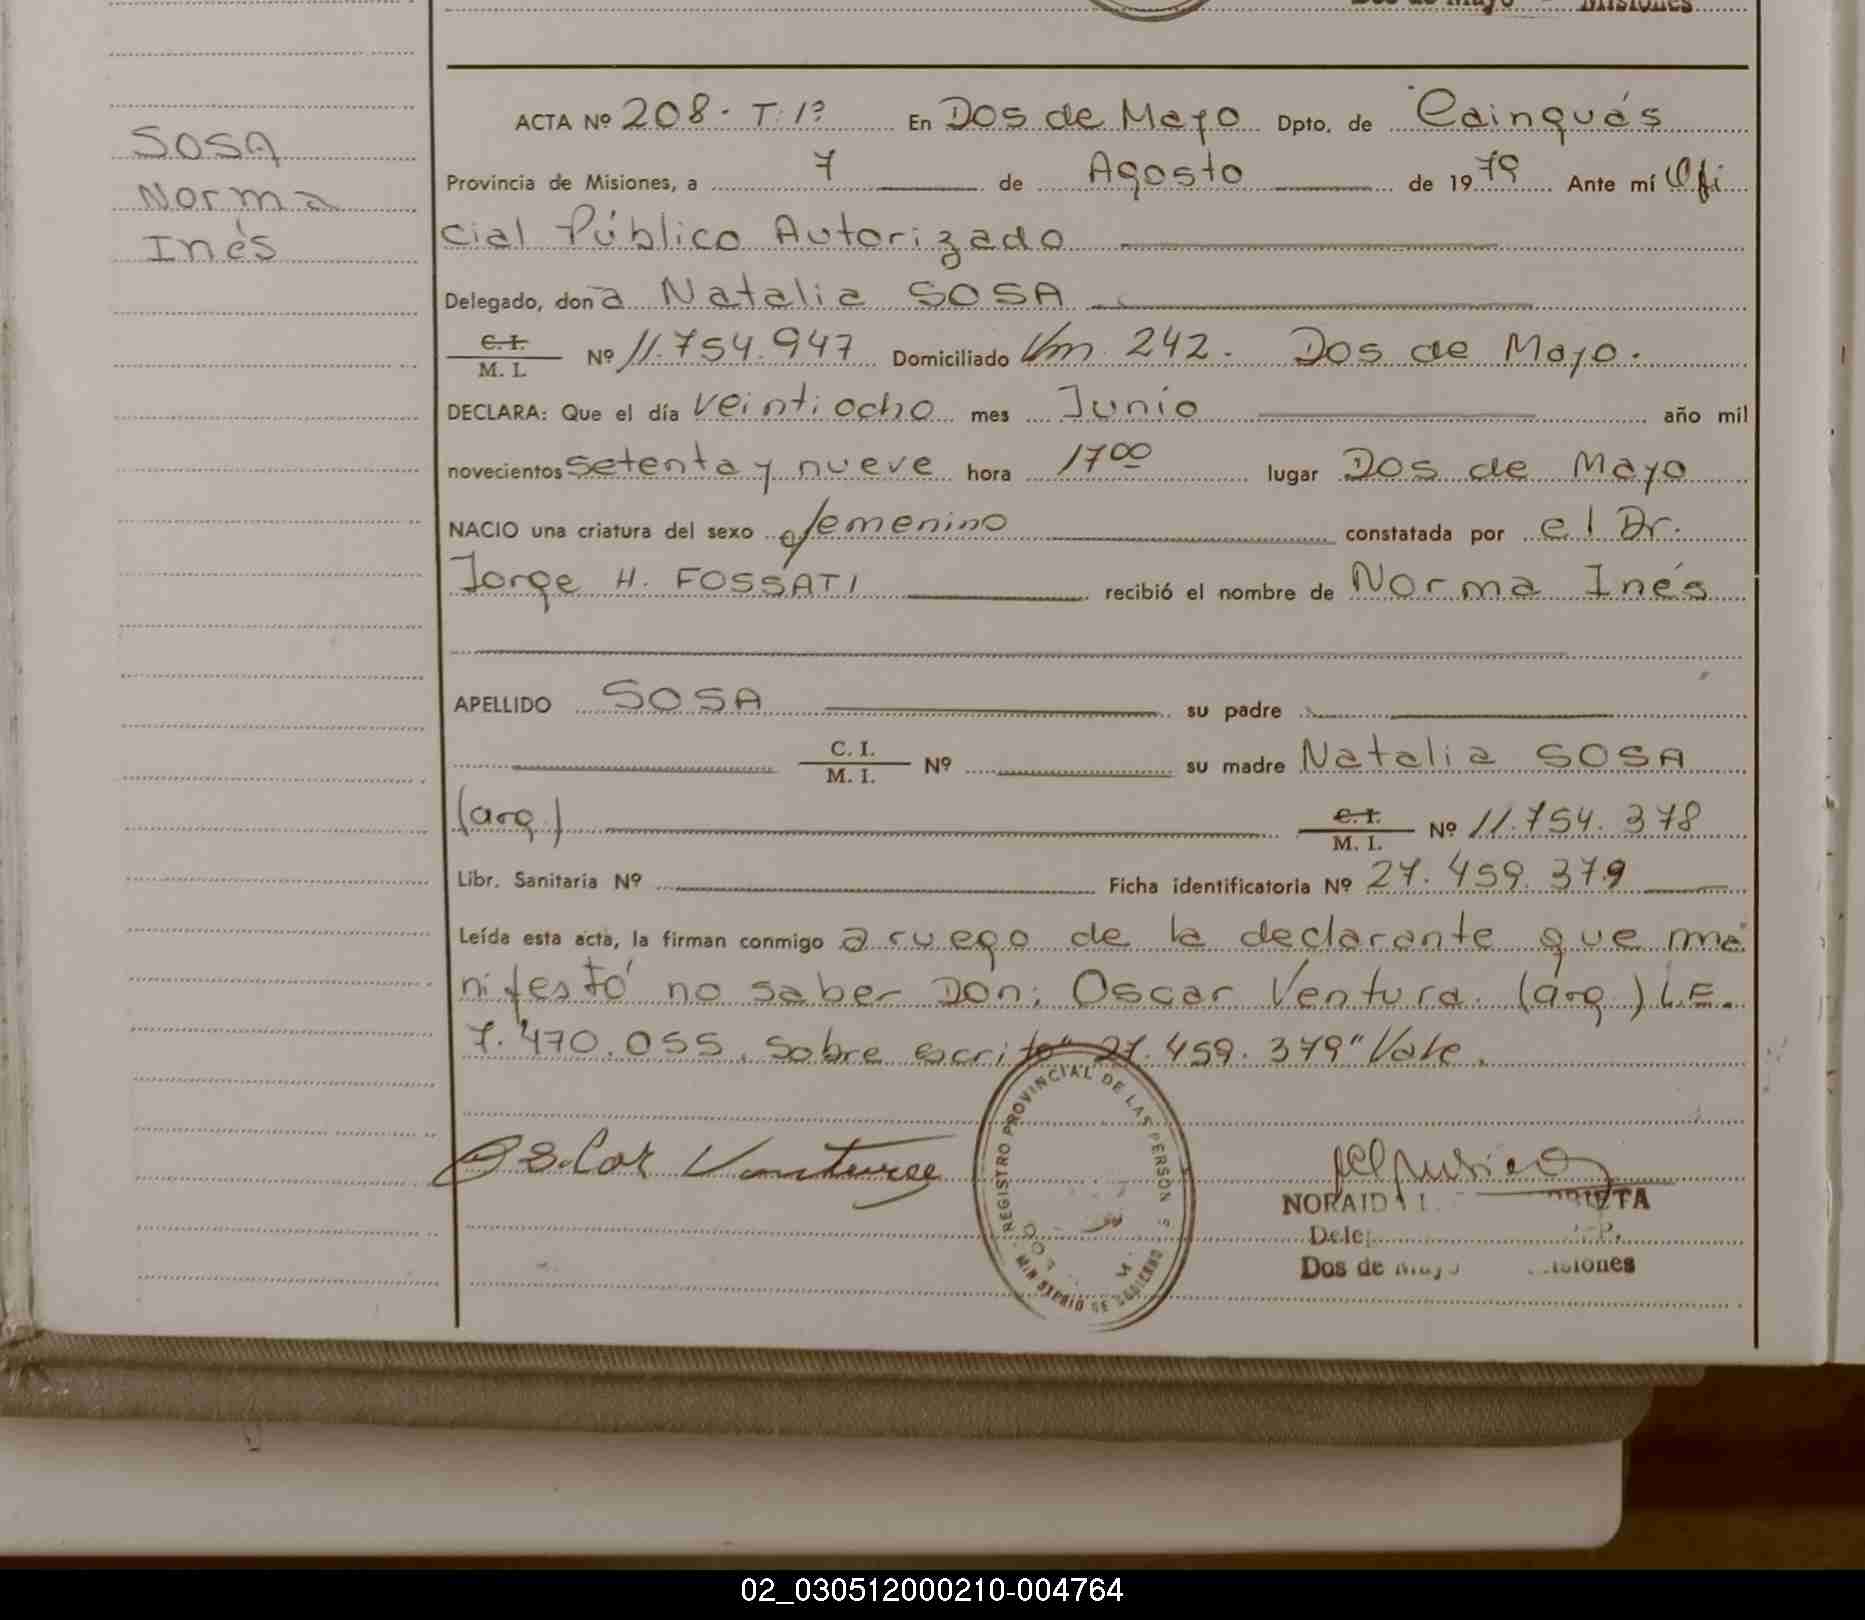 Dos de Mayo - Misiones
ACTA Nº 208 - T. 1º En Dos de Mayo Dpto. de Cainguás
SOSA
Norma
Inés
Provincia de Misiones, a 7 de Agosto de 1979 Ante mí Ofi
cial Público Autorizado
Delegado, don a Natalia SOSA
C. I. / M. I. Nº 11.754.947 Domiciliado Km 242. Dos de Mayo.
DECLARA: Que el día veintiocho mes Junio año mil
novecientos setenta y nueve hora 17 00 lugar Dos de Mayo
NACIO una criatura del sexo femenino constatada por el Dr.
Jorge H. FOSSATI recibió el nombre de Norma Inés
APELLIDO SOSA su padre
C. I. / M. I. Nº su madre Natalia SOSA
(arg.) C. I. / M. I. Nº 11.754.378
Libr. Sanitaria Nº Ficha identificatoria Nº 27.459.379
Leída esta acta, la firman conmigo a ruego de la declarante que ma
nifestó no saber Don: Oscar Ventura. (arg.) L.E.
7.470.055. Sobre escrito "27.459.379" Vale.
Oscar Ventura
REGISTRO PROVINCIAL DE LAS PERSONAS
MINISTERIO DE GOBIERNO
NORAID
Dos de Mayo Misiones
02_030512000210-004764